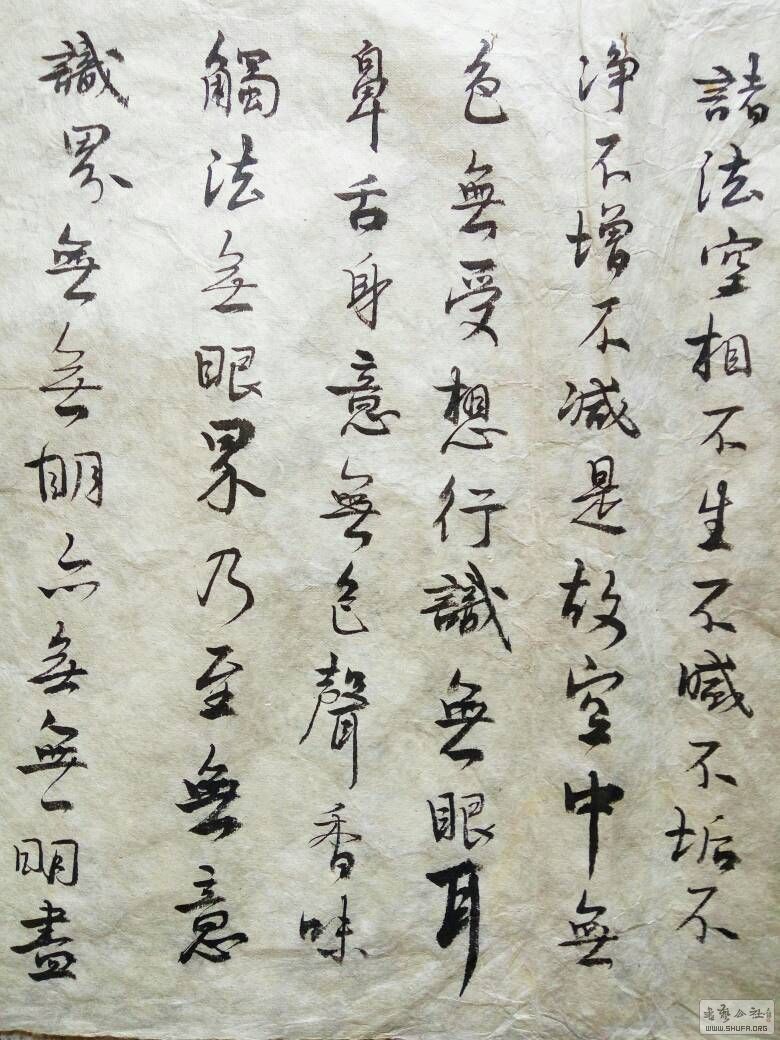 諸法空相不生不滅不垢不
净不增不減是故空中無
色無受想行識無眼耳
鼻舌身意無色聲香味
觸法無眼界乃至無意
識界無無明亦無無明盡
書藝公社
WWW.SHUFA.ORG